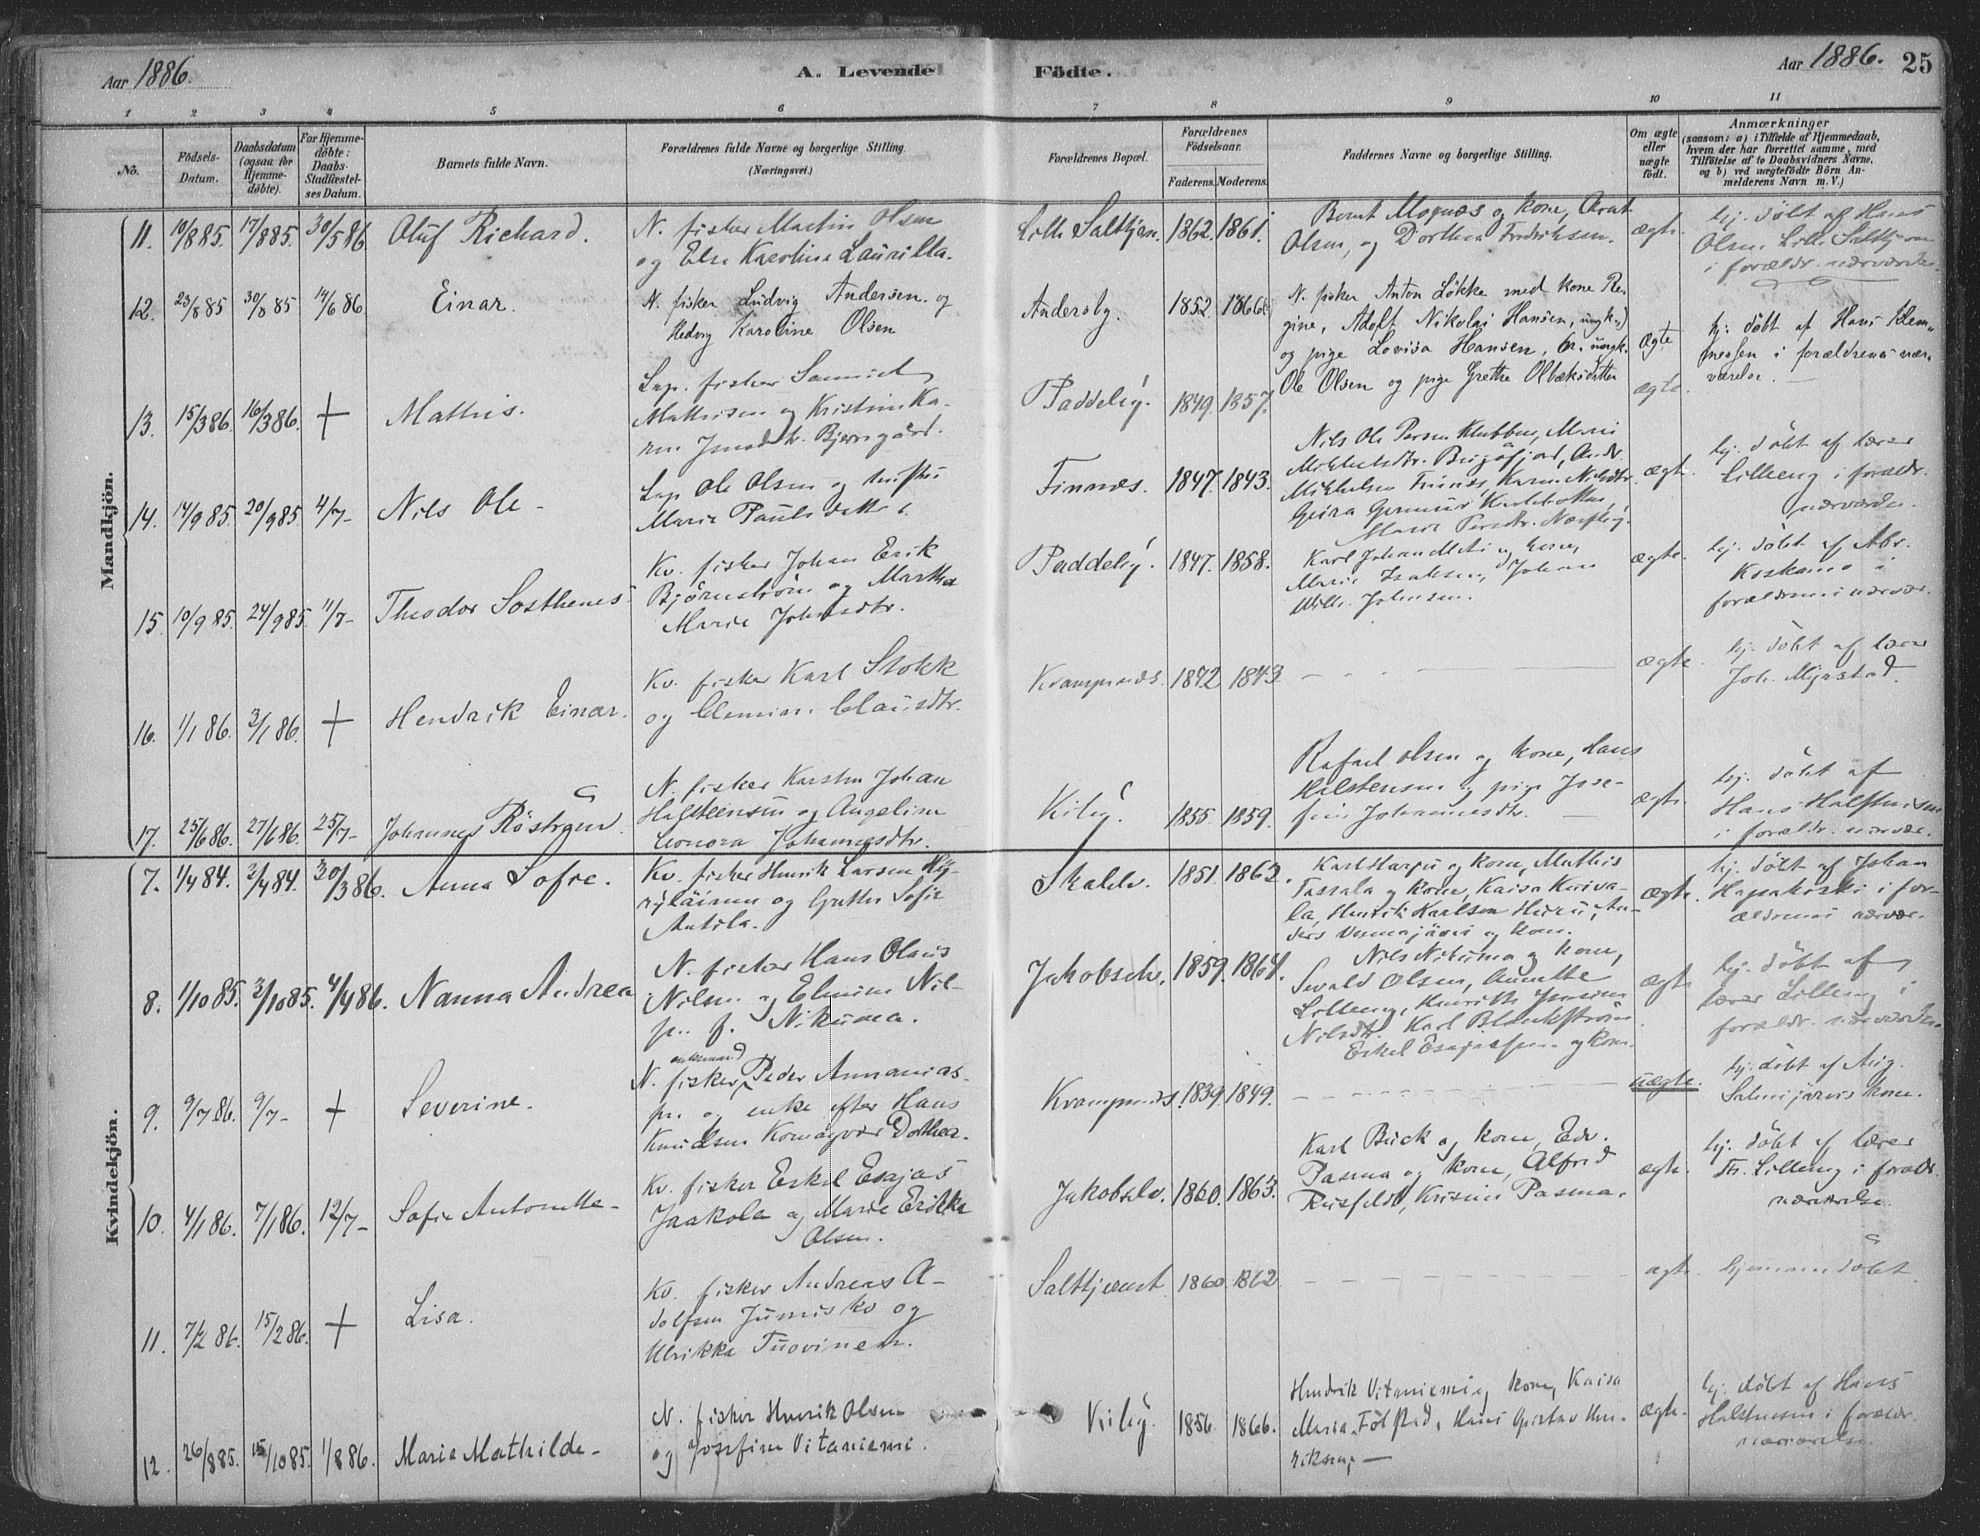 Aar 1886.
A. Levende Födte.
Aar 1886. 25
1 2 3 4 5 6 7 8 9 10 11
No.
Födsels-Datum.
Daabsdatum (ogsaa for Hjemme-döbte).
For Hjemme-döbte: Daabs-Stadfæstel-ses Datum.
Barnets fulde Navn.
Forældrenes fulde Navne og borgerlige Stilling.
(Næringsvei.)
Forældrenes Bopæl.
Forældrenes Födselsaar.
Faderens. Moderens.
Faddernes Navne og borgerlige Stilling.
Om ægte eller uægte födt.
Anmærkninger
(saasom: a) i Tilfælde af Hjemmedaab,
hvem der har forrettet samme, med
Tilföielse af to Daabsvidners Navne,
og b) ved uægtefödte Börn An-
melderens Navn m. V.)
Mandkjön.
11. 10/8 85. 17/8 85. 30/5 86 Oluf Richard.
N. fisker Martin Olsen
og Else Karolina Lauritta.
Lille Saltkjen. 1862. 1861.
Bernt Mognæs og kone,
Olsen, og Dorthea Fredriksen.
ægte.
hj. döbt af Hans
Olsen Lille Saltkjern
i forældr. nærværelse.
12. 23/8 85 30/8 85 14/6 86. Einar.
N. fisker Ludvig Andersen og
Hedvig Karoline Olsen
Andersby. 1852 1866
N. fisker Anton Løkke med kone Re-
gine, Adolf Nikolai Hansen, ungk.,
og pige Lovisa Hansen, ungk.
Ole Olsen og pige Grethe Olbæksdatter
Ægte
hj. döbt af Hans Klem-
mesen i forældrenes nær-
værelse.
13. 15/3 86. 16/3 86. + Mathis.
Lap. fisker Samuel
Mathisen og Kristine Ka-
ren
Paddeby. 1849. 1857.
ægte.
14. 14/9 85. 20/9 85 4/7- Nils Ole -
Lap Ole Olsen og hustru
Marie Pauls datter.
Finnæs. 1847. 1843.
Nils Ole Persen Klubben, Marie
Mikkelsdtr. Andr.
Mikkelsen Finnæs, Karen Nilsdtr.
ægte.
hj. döbt af lærer
Lilleeng i foræld.
nærværelse.
15. 10/9 85. 24/9 85 11/7- Theodor Sosthenes.
Kv. fisker Johan Erik
Björnström og Martha
Marie Johansdtr.
Paddeby. 1847. 1858.
Karl Johan og kone,
Marie Isaksen, Johan
Wilh. Johnsen.
ægte.
hj. döbt af Abr.
Koskamo i
forældrenes nærvær.
16. 1/1 86. 3/1 86. + Hendrik Einar.
Kv. fisker Karl Stokk
og Clemine Clausdtr.
Krampenæs. 1842 1843
ægte.
hj. döbt af lærer
Joh. Myrstad.
17. 25/6 86. 27/6 86. 25/7- Johannes
N. fisker Karsten Johan
Halsteensen og Angeline
Leonora Johannesdtr.
Kiby. 1855. 1859.
Rafael Olsen og kone, Hans
Halstensen og pige Jose-
fine Johannesdtr.
ægte.
hj. döbt af
Hans Halstensen
i forældr. nærvær.
Kvindekjön.
7. 1/4 84. 2/4 84. 30/3 86. Anna Sofie.
Kv. fisker Henrik Larsen
og Grethe Sofie
Antila.
Skaldv. 1851. 1862.
og kone, Mathis
Tassala og kone, Kaisa
Henrik Karlsen
og kone.
ægte.
hj. döbt af Johan
i for-
ældrenes nærvær.
8. 1/10 85. 3/10 85. 4/4 86. Nanna Andrea
N. fisker Hans Olaus
Nilsen og Elmine Nil-
f. Nikuma.
Jakobselv. 1859. 1864.
Nils Nikuma og kone,
Sevald Olsen, Annette
Lilleeng, Henriette
Nilsdt. Karl Blankström
og kone.
ægte.
hj. döbt af
lærer Lilleeng i
forældr. nærværelse.
9. 9/7 86. 9/7- + Severine.
enkemand
N. fisker Peder Annanias-
og enke efter Hans
Knudsen Komagvær Dothea.
Krampenæs. 1839. 1849.
uægte.
hj. döbt af Aug.
Salmijärvis kone.
10. 4/1 86. 7/1 86. 12/7- Sofie Antonette -
Kv. fisker Erkel Esajas
Jaakola og Marie Erikka
Olsen.
Jakobselv. 1860. 1863.
Karl Buck og kone, Edv.
Pasma og kone, Alfred
Rusfeldt, Kristine Pasma.
ægte.
hj. döbt af lærer
Th. Lilleeng i foræld.
nærværelse.
11. 7/2 86. 15/2 86. + Lisa.
Kv. fisker Andreas A-
dolfsen Jumisko og
Ulrikka Tuovinen.
Saltkjernet 1860. 1862.
ægte.
hjemmedöbt.
12. 26/8 85. 15/10 85. 1/8 86. Marie Mathilde -
N. fisker Henrik Olsen
og Josefine Vitaniemi.
Kiby. 1856. 1866.
Hendrik Vitaniemi og kone, Kaisa
Maria Fölstad, Hans Gustav Hen-
riksen, -
ægte.
hj. döbt af Hans
Halstensen i forældr.
nærværelse.